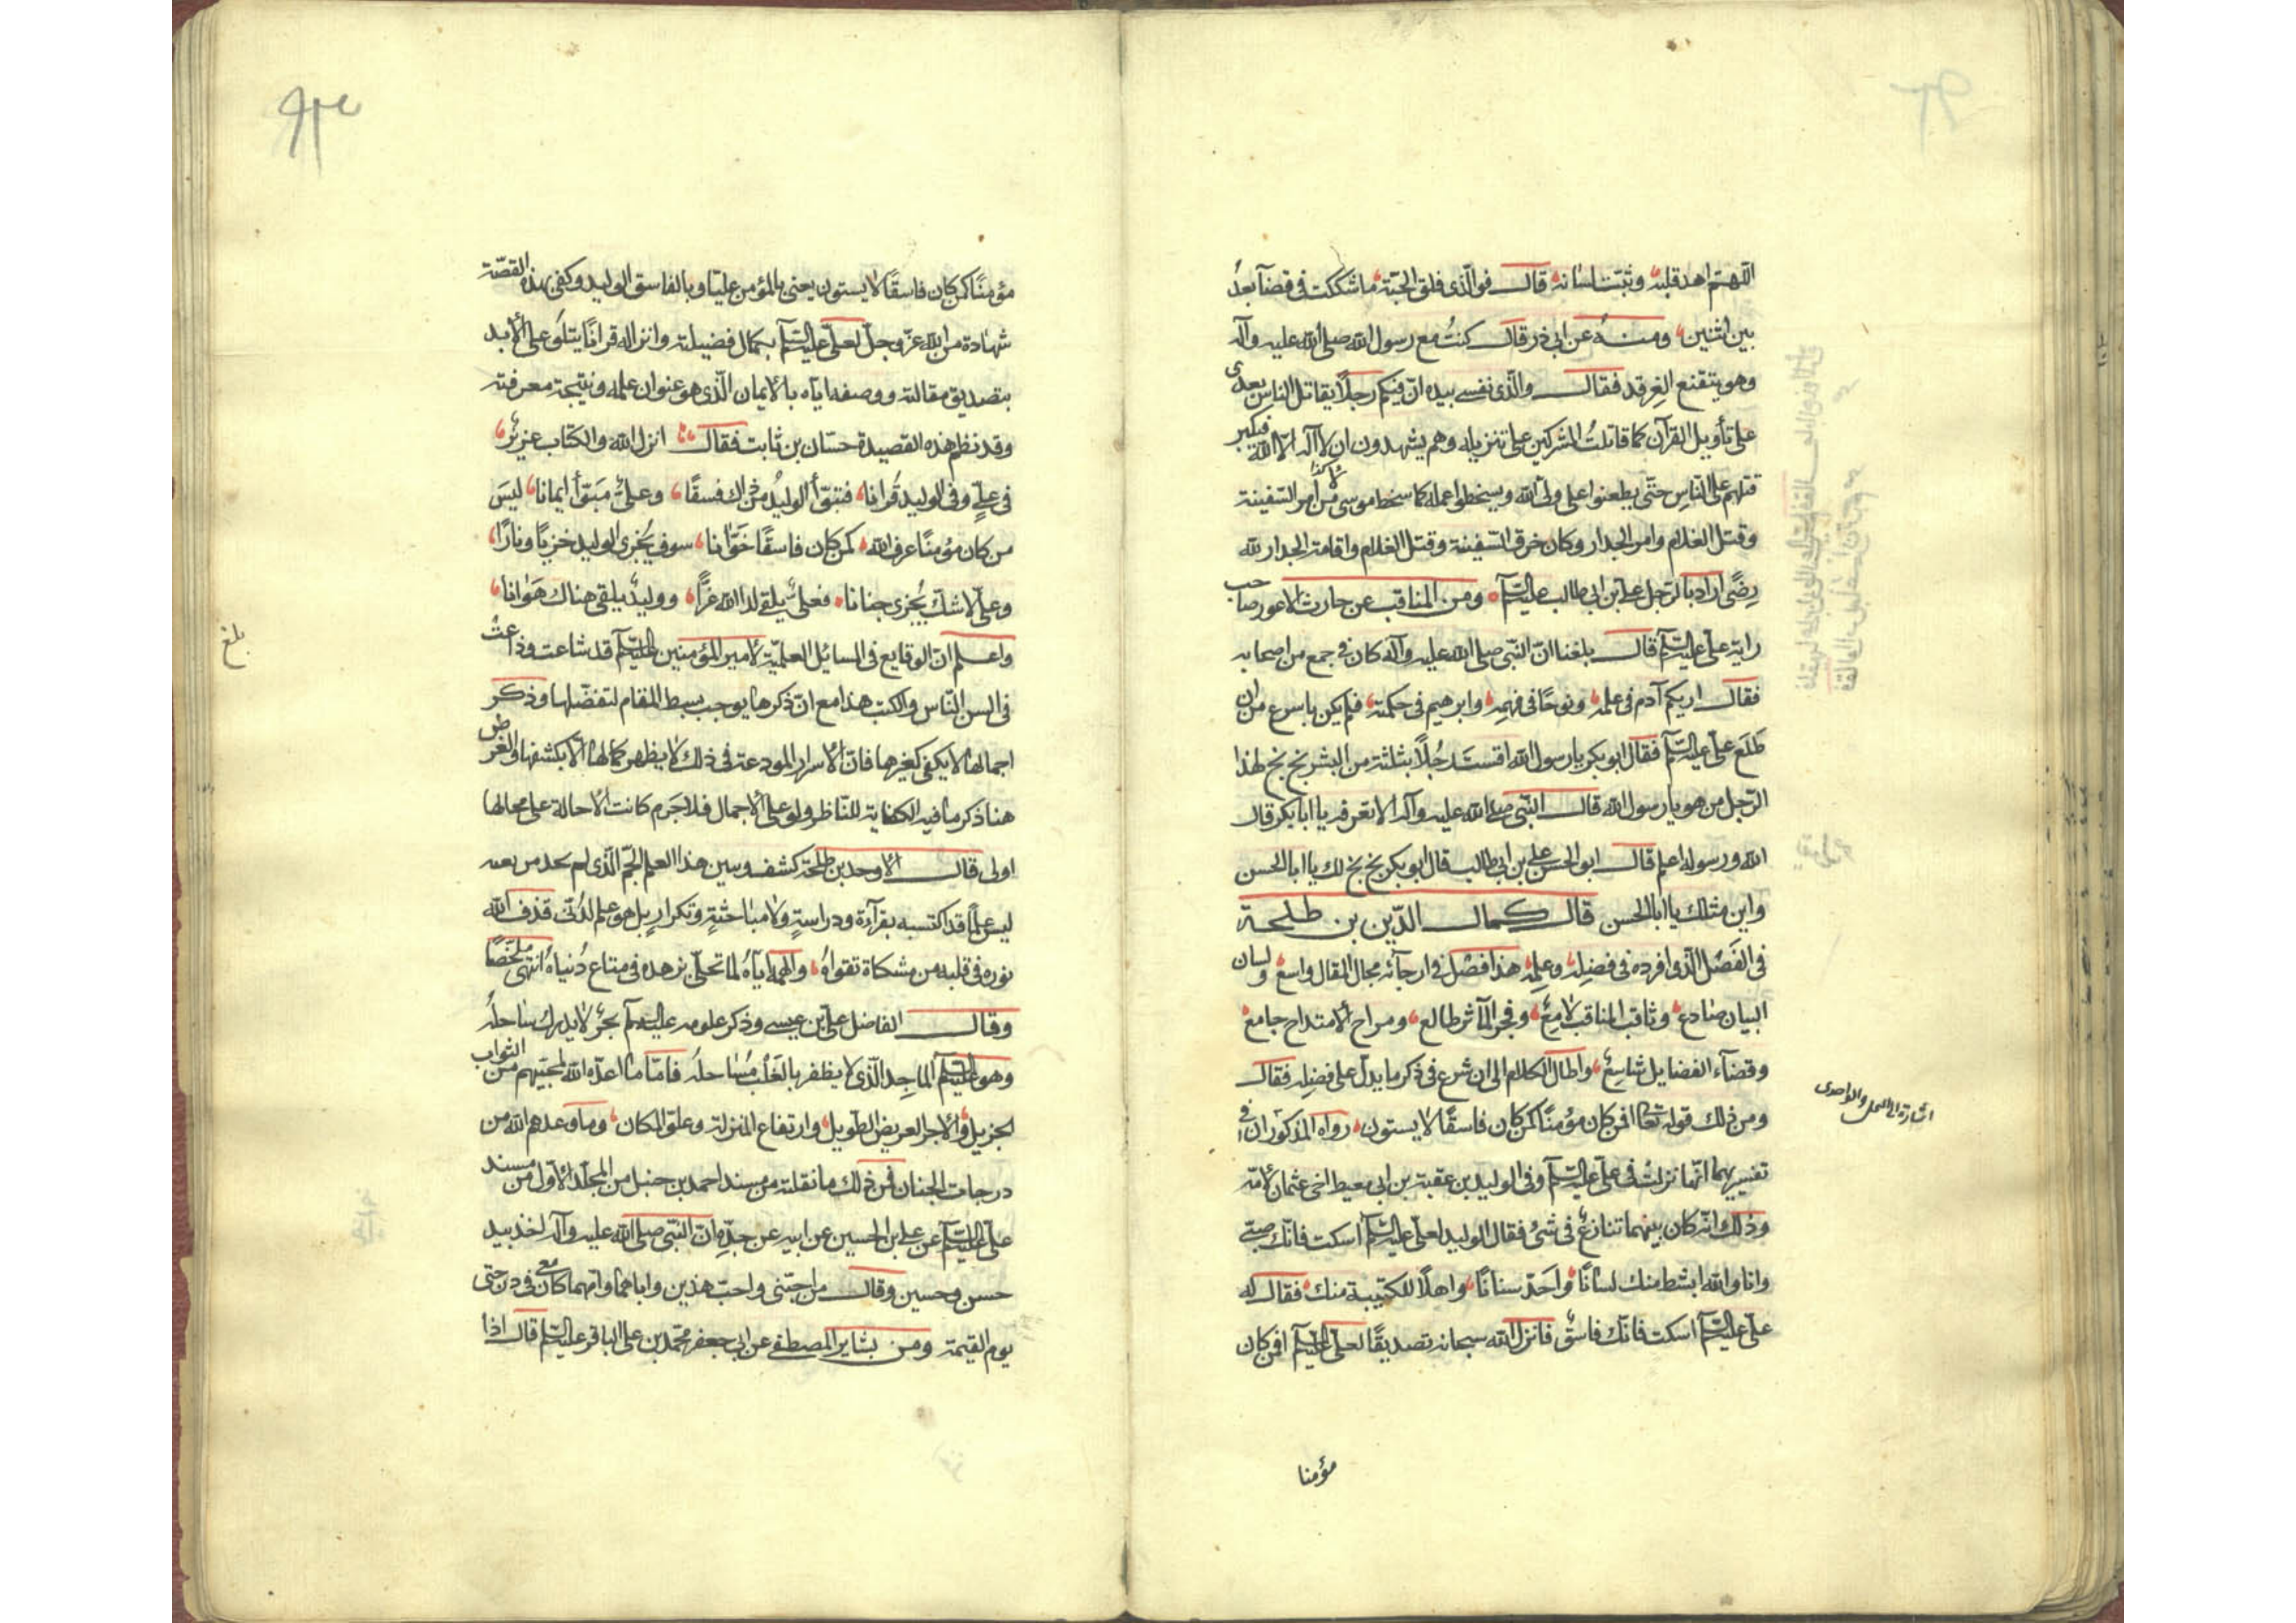 اللهم اهد قلبه وثبت لسانه قال فوالذى فلق الحبة ما شككت فى قضآء بعدُ
بين اثنين ومنه عن ابى ذر قال كنتُ مع رسول الله صلى الله عليه وآله
وهو بتقنع الغرقد فقال والذى نفسى بيده انّ فيكم رجلًا يقاتل الناس بعدى
على تأويل القرآن كما قاتلتُ المشركين على تنزيله وهم يشهدون ان لا آله الا الله فيكبر
قتلهم على الناسِ حتّى يطعنوا على ولىّ الله ويسخطوا عمله كما سخط موسى من امر السّفينة
وقتل الغلام وامر الجدار وكان خرق السّفينة وقتل الغلام واقامة الجدار لله
رضًى اراد بالرّجل على بن ابى طالب عليه السّلم ومن المناقب عن حارث الاعور صاحب
راية على عليه السّلم قال بلغنا انّ النّبى صلى الله عليه وآله كان فى جمع من اصحابه
فقال اريكم آدم فى علمه ونوحًا فى فهمِه وابرهيم فى حكمته فلم يكن باسرع من ان
طلَع على عليه السّلم فقال ابو بكر يا رسول الله اقستَ رجُلًا بثلثة من البشر بخ بخ لهذا
الرّجل من هو يا رسول الله قال النّبى صلى الله عليه وآله الا تعرفه يا ابا بكر قال
الله ورسوله اعلم قال ابو الحسن على بن ابى طالب قال ابو بكر بخ بخ لك يا ابا الحسن
واين مثلك يا ابا الحسن قال كمال الدّين بن طلحة
فى الفَصْل الّذى افرده فى فضلِه وعلمِه هذا فصْل فى ارجآئه مجال المقال واسع ولسان
البيان صَادع وثاقب المناقب لامِعٌ وفجر المآثر طالع ومراح الامتداح جامع
وفضآء الفضايل شاسعٌ واطال الكلام الى ان شرع فى ذكر ما يدلّ على فضله فقال
ومن ذلك قوله تعا افمن كان مؤمنًا كمن كان فاسقًا لا يستون رواه المذكوران فى
تفسيريهما انّها نزلتْ فى علىّ عليه السّلم وفى الوليد بن عقبة بن ابى معيط اخى عثمان لامّه
وذلك انّه كان بينهما تنازعٌ فى شئ فقال الوليد لعلىّ عليه السّلم اسكت فانّك صبىّ
وانا والله ابسط منك لسانًا واحَدّ سنانًا واهلًا للكتيبة منك فقال له
علىّ عليه السّلم اسكت فانّك فاسقٌ فانزل الله سبحانه تصديقًا لعلىّ عليه السّلم افمن كان
مؤمنا
والواحدى
مؤمنًا كمن كان فاسقًا لا يستون يعنى بالمؤمن عليّا وبالفاسق الوليد وكفى بهذه القصّة
شهادة من الله عزّ وجلّ لعلىّ عليه السّلم بكمال فضيلته وانزاله قرانًا يتلى على الأبد
بتصديق مقالته ووصفه ايّاه بالايمان الّذى هو عنوان علمه ونتيجة معرفته
وقد نظم هذه القصيدة حسّان بن ثابت فقال انزل الله والكتاب عزيزٌ
فى علىٍّ وفى الوليد قُرانا فتبوّأ الوليدُ من ذاك فسقًا وعلىٌّ مَبوّأ ايمانا ليسَ
من كان مؤمنًا عرف الله كمن كان فاسقًا خَوّانا سوف يُجزى الوليد خزيًا ونارًا
وعلىّ لا شكّ يُجزى جنانا فعلىٌّ يلقى لدا الله عزًّا ووليدٌ يلقى هناك هَوانا
واعلم انّ الوقايع فى المسايل العلميّة لامير المؤمنين عليه السّلم قد شاعت وذاعتْ
فى السن النّاس والكتب هذا مع انّ ذكرها يوجب بسط المقام لتفضّلها وذكر
اجمالها لا يكفى كغيرها فانّ الاسرار المودعة فى ذلك لا يظهر كمالها الّا بكشفها والغرض
هنا ذكر ما فيه الكفاية للنّاظر ولو على الاجمال فلا جَرم كانت الاحالة على محالها
اولى قال الاوحد بن طلحة كشف وسين هذا العلم الجمّ الّذى لم يجد من بعد
ليس علمًا قد اكتسبه بقرآءة ودراسةٍ ولا مباحثةٍ وتكرارٍ بل هو علم لدُنّى قذف الله
نوره فى قلبه من مشكاة تقواهُ والهمه ايّاهُ لما تحلّى بزهده فى متاع دُنياهُ انتهى ملخّصًا
وقال الفاضل على بن عيسى وذكر علومه عليه السّلم بحرٌ لا يدرك ساحلُه
وهو عليه السّلم الماجِد الّذى لا يظفر بالغَلْب مُساحلُه فامّا ما اعدّه الله لمحبّيهم من الثواب
الجزيل والاجر العريض الطويل وارتفاع المنزلة وعلوّ المكان وما وعدهم الله من
درجات الجنان فمن ذلك ما نقلته من مسند احمد بن حنبل من المجلّد الاوّل من مسند
علىّ عليه السّلم عن على بن الحسين عن ابيه عن جدّهِ انّ النّبى صلى الله عليه وآله اخذ بيد
حسن وحسين وقال من احبّنى واحبّ هذين واباهما وامّهما كان معى فى درجتى
يوم القيمة ومن بشاير المصطفى عن ابى جعفر محمّد بن على الباقر عليه السّلم قال اذا
بلغ